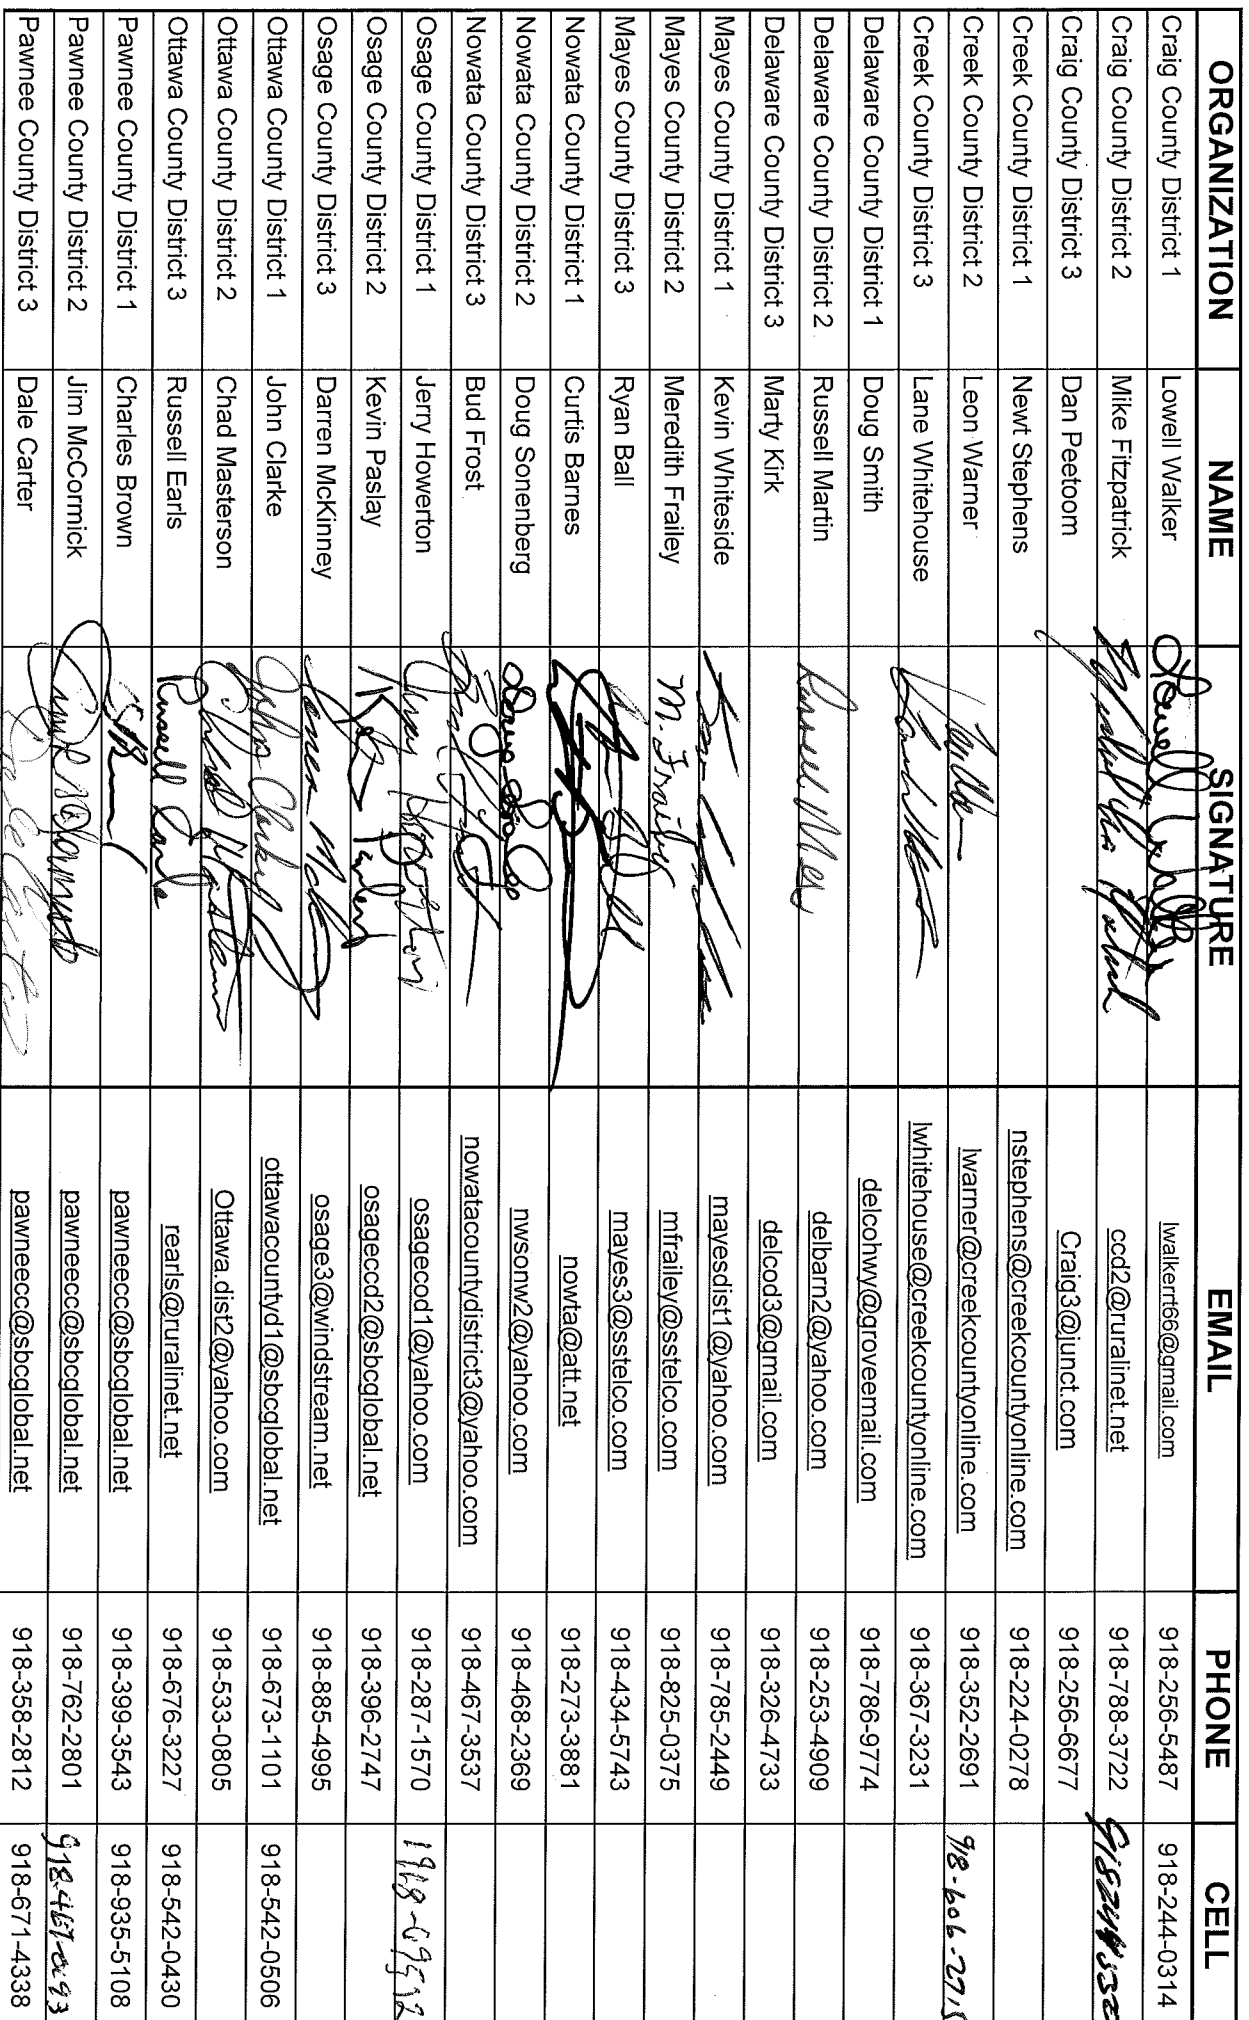 ORGANIZATION NAME SIGNATURE EMAIL PHONE CELL
Craig County District 1 Lowell Walker Lowell Walker lwalkerrt66@gmail.com 918-256-5487 918-244-0314
Craig County District 2 Mike Fitzpatrick ccd2@ruralinet.net 918-788-3722
Craig County District 3 Dan Peetoom Craig3@junct.com 918-256-6677
Creek County District 1 Newt Stephens nstephens@creekcountyonline.com 918-224-0278
Creek County District 2 Leon Warner lwarner@creekcountyonline.com 918-352-2691 918-606-2715
Creek County District 3 Lane Whitehouse lwhitehouse@creekcountyonline.com 918-367-3231
Delaware County District 1 Doug Smith delcohwy@groveemail.com 918-786-9774
Delaware County District 2 Russell Martin delbarn2@yahoo.com 918-253-4909
Delaware County District 3 Marty Kirk delcod3@gmail.com 918-326-4733
Mayes County District 1 Kevin Whiteside mayesdist1@yahoo.com 918-785-2449
Mayes County District 2 Meredith Frailey M. Frailey mfrailey@sstelco.com 918-825-0375
Mayes County District 3 Ryan Ball mayes3@sstelco.com 918-434-5743
Nowata County District 1 Curtis Barnes nowta@att.net 918-273-3881
Nowata County District 2 Doug Sonenberg nwsonw2@yahoo.com 918-468-2369
Nowata County District 3 Bud Frost nowatacountydistrict3@yahoo.com 918-467-3537
Osage County District 1 Jerry Howerton osagecod1@yahoo.com 918-287-1570
Osage County District 2 Kevin Paslay osageccd2@sbcglobal.net 918-396-2747
Osage County District 3 Darren McKinney osage3@windstream.net 918-885-4995
Ottawa County District 1 John Clarke John Clarke ottawacountyd1@sbcglobal.net 918-673-1101 918-542-0506
Ottawa County District 2 Chad Masterson Ottawa.dist2@yahoo.com 918-533-0805
Ottawa County District 3 Russell Earls Russell Earls rearls@ruralinet.net 918-676-3227 918-542-0430
Pawnee County District 1 Charles Brown pawneecc@sbcglobal.net 918-399-3543 918-935-5108
Pawnee County District 2 Jim McCormick pawneecc@sbcglobal.net 918-762-2801
Pawnee County District 3 Dale Carter pawneecc@sbcglobal.net 918-358-2812 918-671-4338